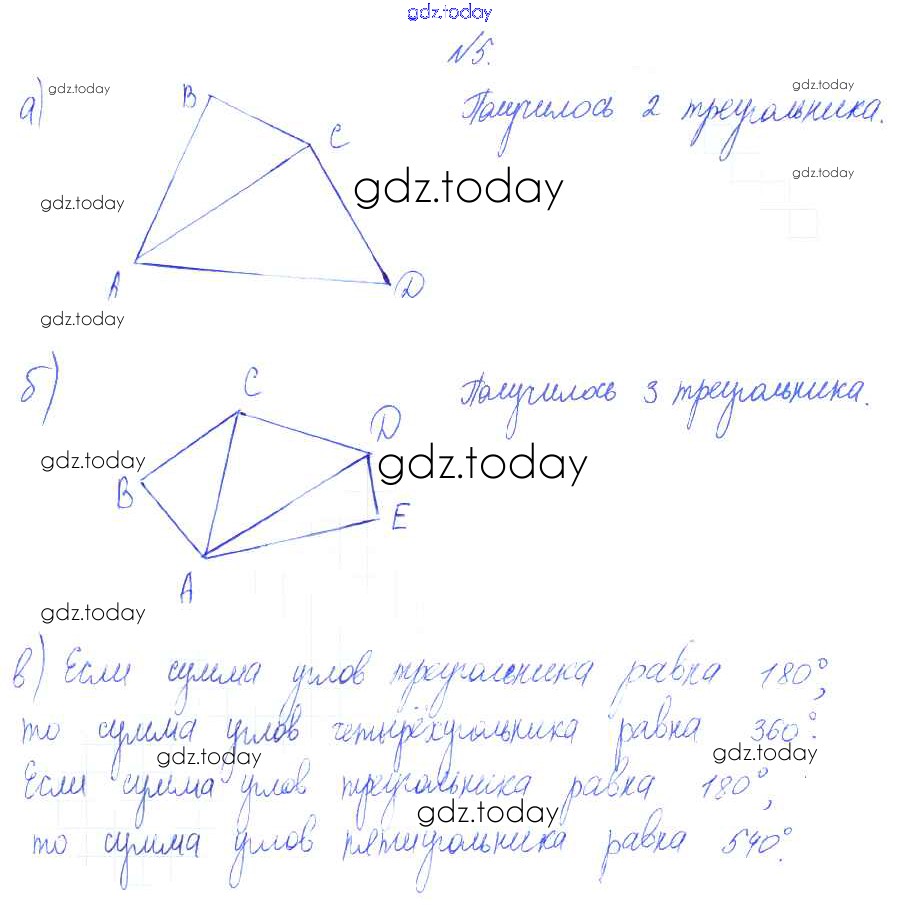 gdz.today
№5.
а) gdz.today
B
C
A
D
Получилось 2 треугольника.
gdz.today
gdz.today
gdz.today
gdz.today
gdz.today
б)
C
D
B
E
A
Получилось 3 треугольника.
gdz.today
gdz.today
gdz.today
в) Если сумма углов треугольника равна 180°,
то сумма углов четырёхугольника равна 360°.
gdz.today
gdz.today
Если сумма углов треугольника равна 180°,
gdz.today
то сумма углов пятиугольника равна 540°.